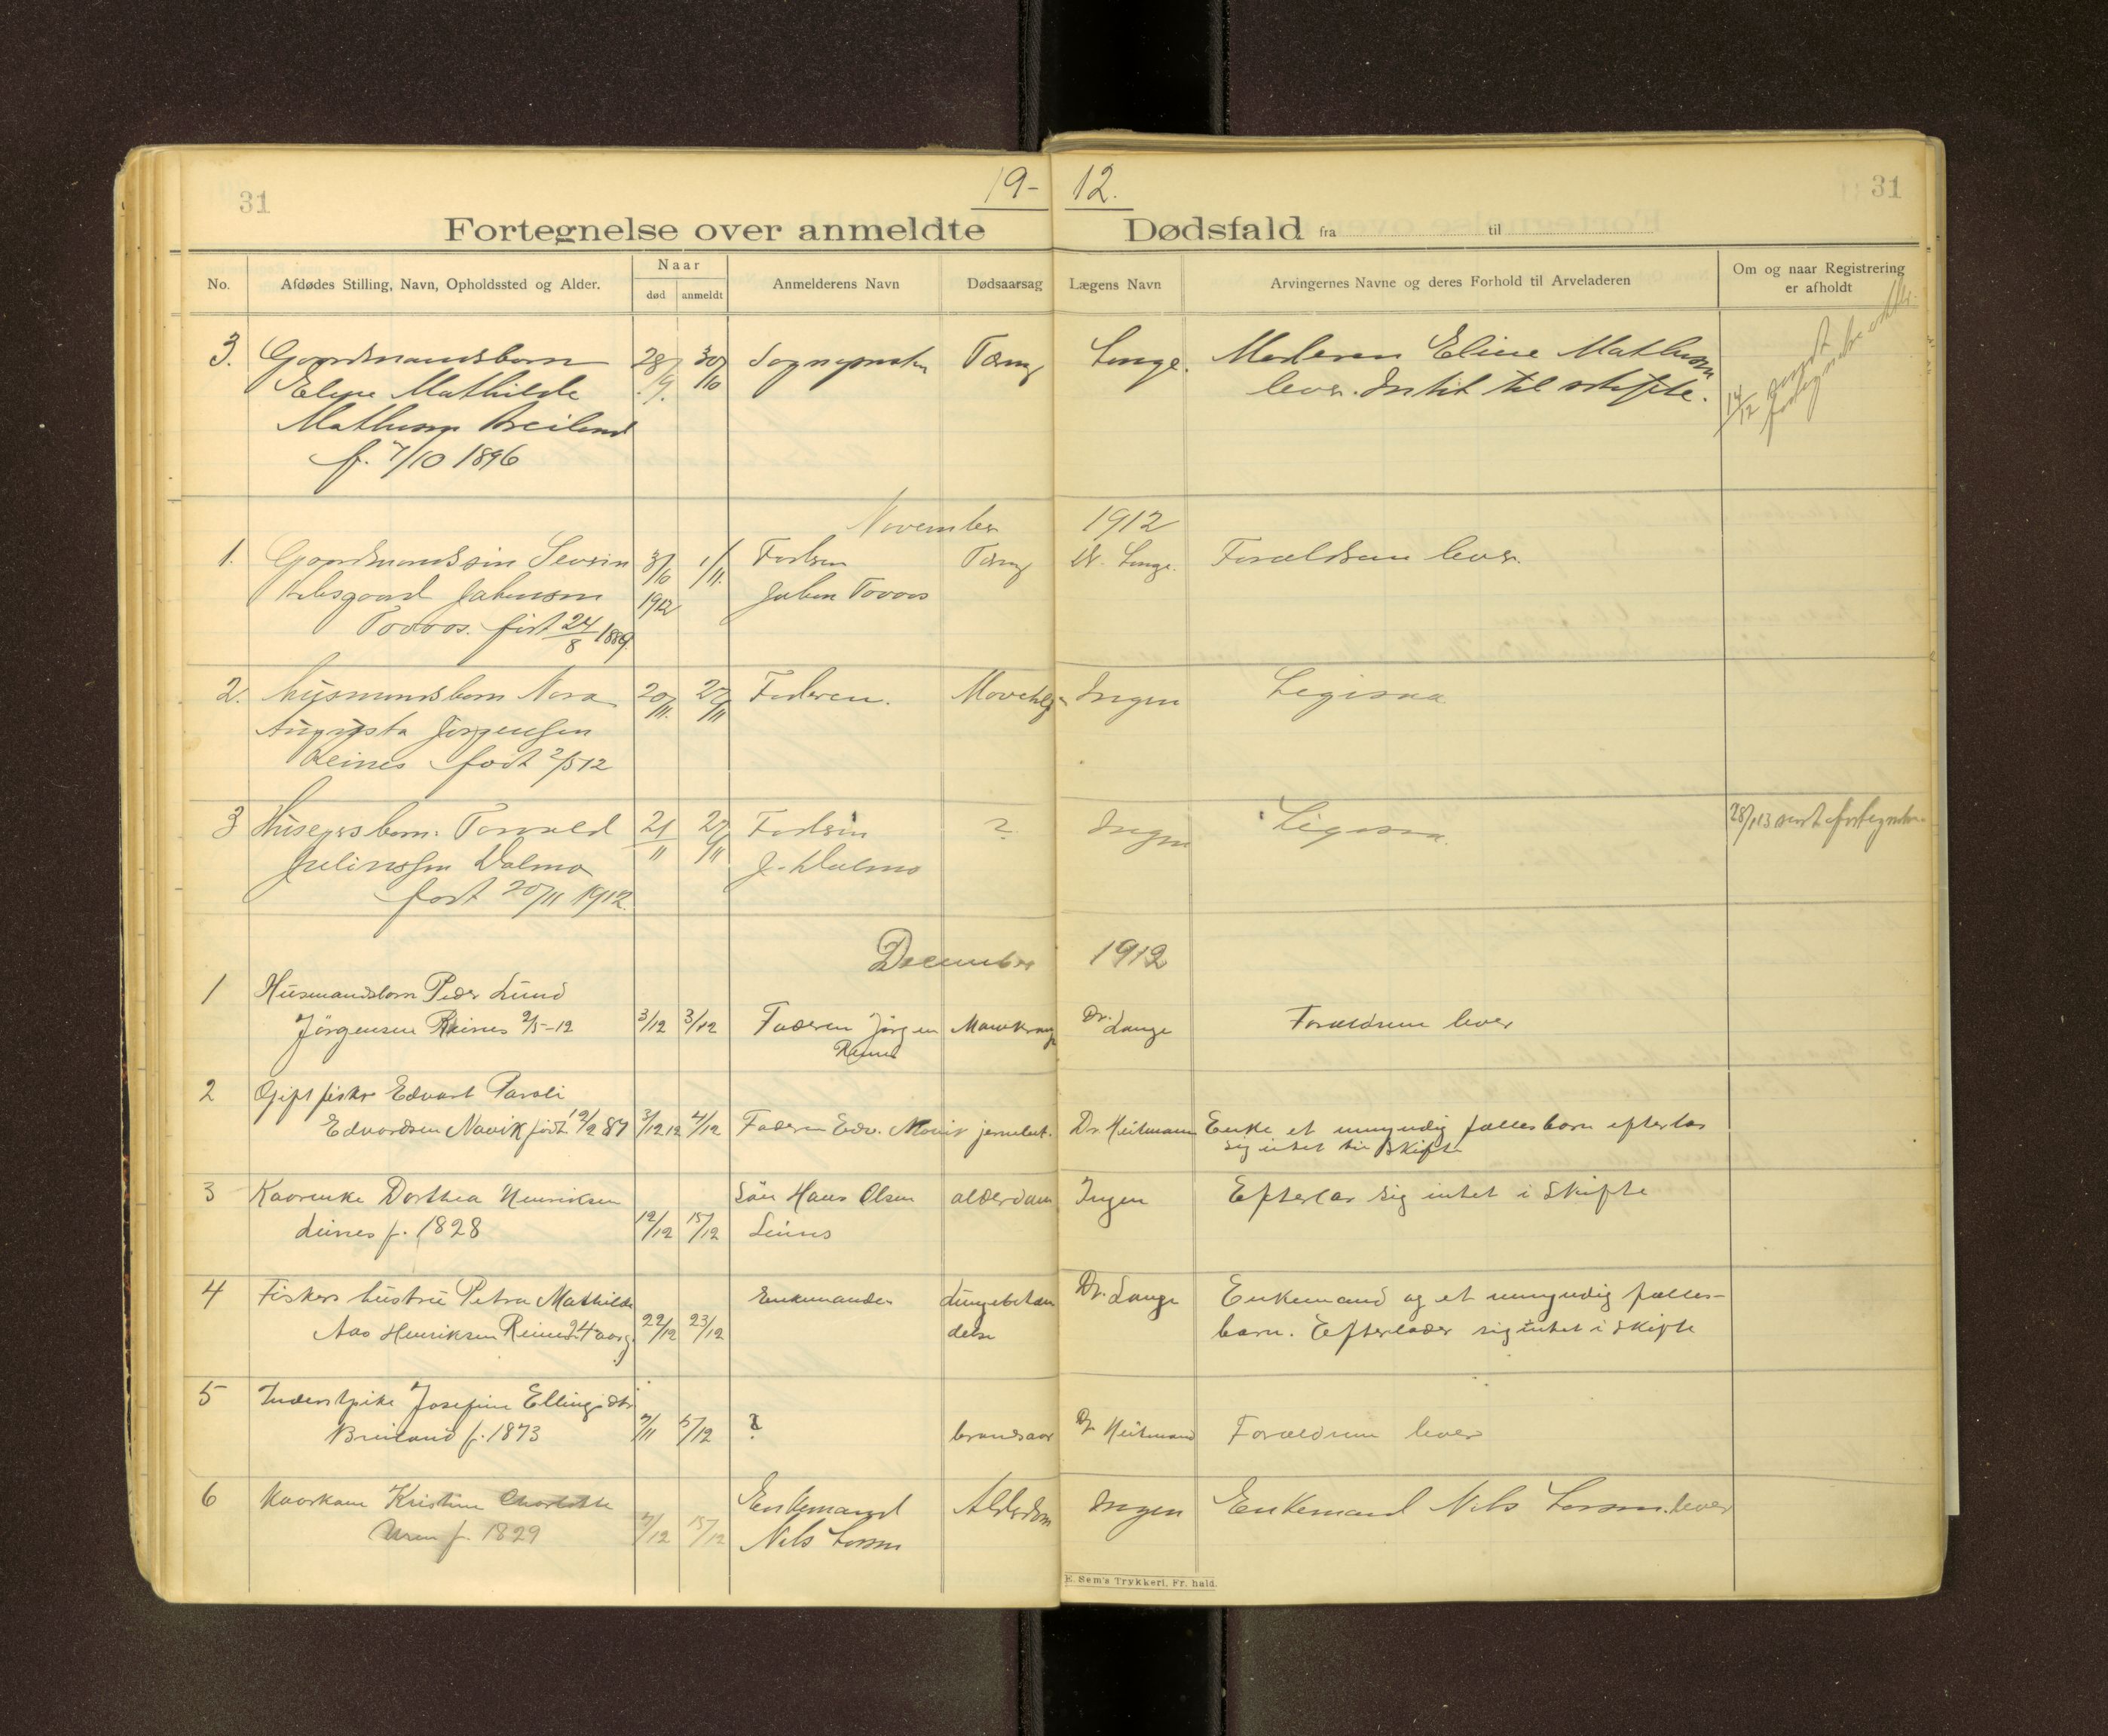 31
19-
12.
31
Fortegnelse over anmeldte
Dødsfald fra til
No.
Afdødes Stilling, Navn, Opholdssted og Alder.
Naar
død anmeldt
Anmelderens Navn
Dødsaarsag
Lægens Navn
Arvingernes Navne og deres Forhold til Arveladeren
Om og naar Registrering
er afholdt
3. Gaardmandsbarn 28/ 30/ Sognepresten Tæring Lange. Moderen Eline Mathisen
Eline Mathilde 9. 10 lever. Intet til skifte.
Mathisen Breiland
f. 7/10 1896
14/12
November 1912
1. Gaardmandssøn Severin 31/10 1/11. Faderen Tæring Dr. Lange. Forældrene lever.
Jakobsen 1912 Jakob
født 24/8 1889
2. Husmandsbarn Nora 20/11. 27/11 Faderen. Ingen Ligesaa
Augusta Jørgensen
Reines født 2/5 12
3 Barn Torvald 21/11 27/11 Faderen ? Ingen Ligesaa 28/1 13
Juliussen Valmo J. Valmo
født 20/11 1912.
December 1912
1 Husmandsbarn Peder Lund
Jörgensen Reines 2/5-12 3/12 3/12 Faderen Jörgen Dr. Lange Forældrene lever
Reines
2 Gift fisker Edvart Paroli
Edvardsen født 19/2 87 3/12 12 4/12 Faderen Edv. Dr. Heitmann Enke et umyndig fællesbarn efterlar
sig intet til skifte
3 Kaarenke Dorthea Henriksen Sön Hans Olsen alderdom Ingen Efterlar sig intet i Skifte
Leines f. 1828 12/12 15/12 Leines
4 Fiskers hustru Petra Mathilde Enkemanden Lungebetæn Dr. Lange Enkemand og et umyndig fælles-
Aas Henriksen Reines 24 aarg. 22/12 23/12 delse barn. Efterlader sig intet i skifte
5 Inderstpike Josefine Ellingsdtr
Breiland f. 1873 7/11 5/12 ? brandsaar Dr Heitmann Forældrene lever
6 Kaarkone Kristine Charlotte Enkemand Alderdom Ingen Enkemand Nils Larsen lever
Uren f. 1829 7/12 15/12 Nils Larsen
E. Sem's Trykkeri, Fr. hald.